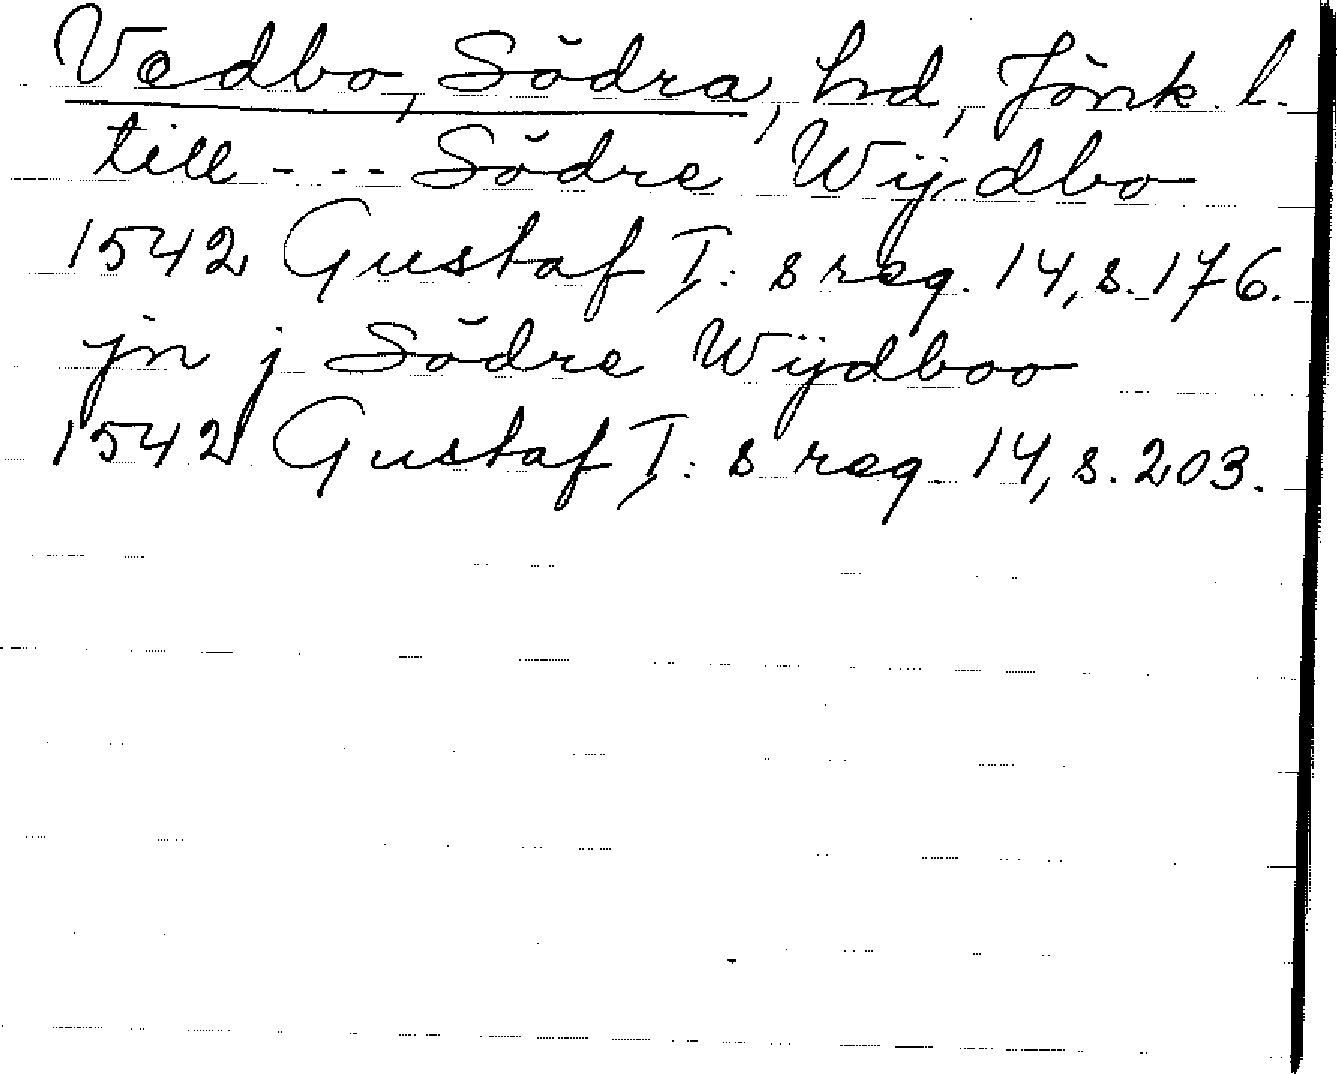 Vedbo, Södra, hd, Jönk. l.
till - - - Södre Wijdbo
1542 Gustaf I:s reg. 14, s. 176.
jn j Södre Wijdboo
1542 Gustaf I:s reg. 14, s. 203.